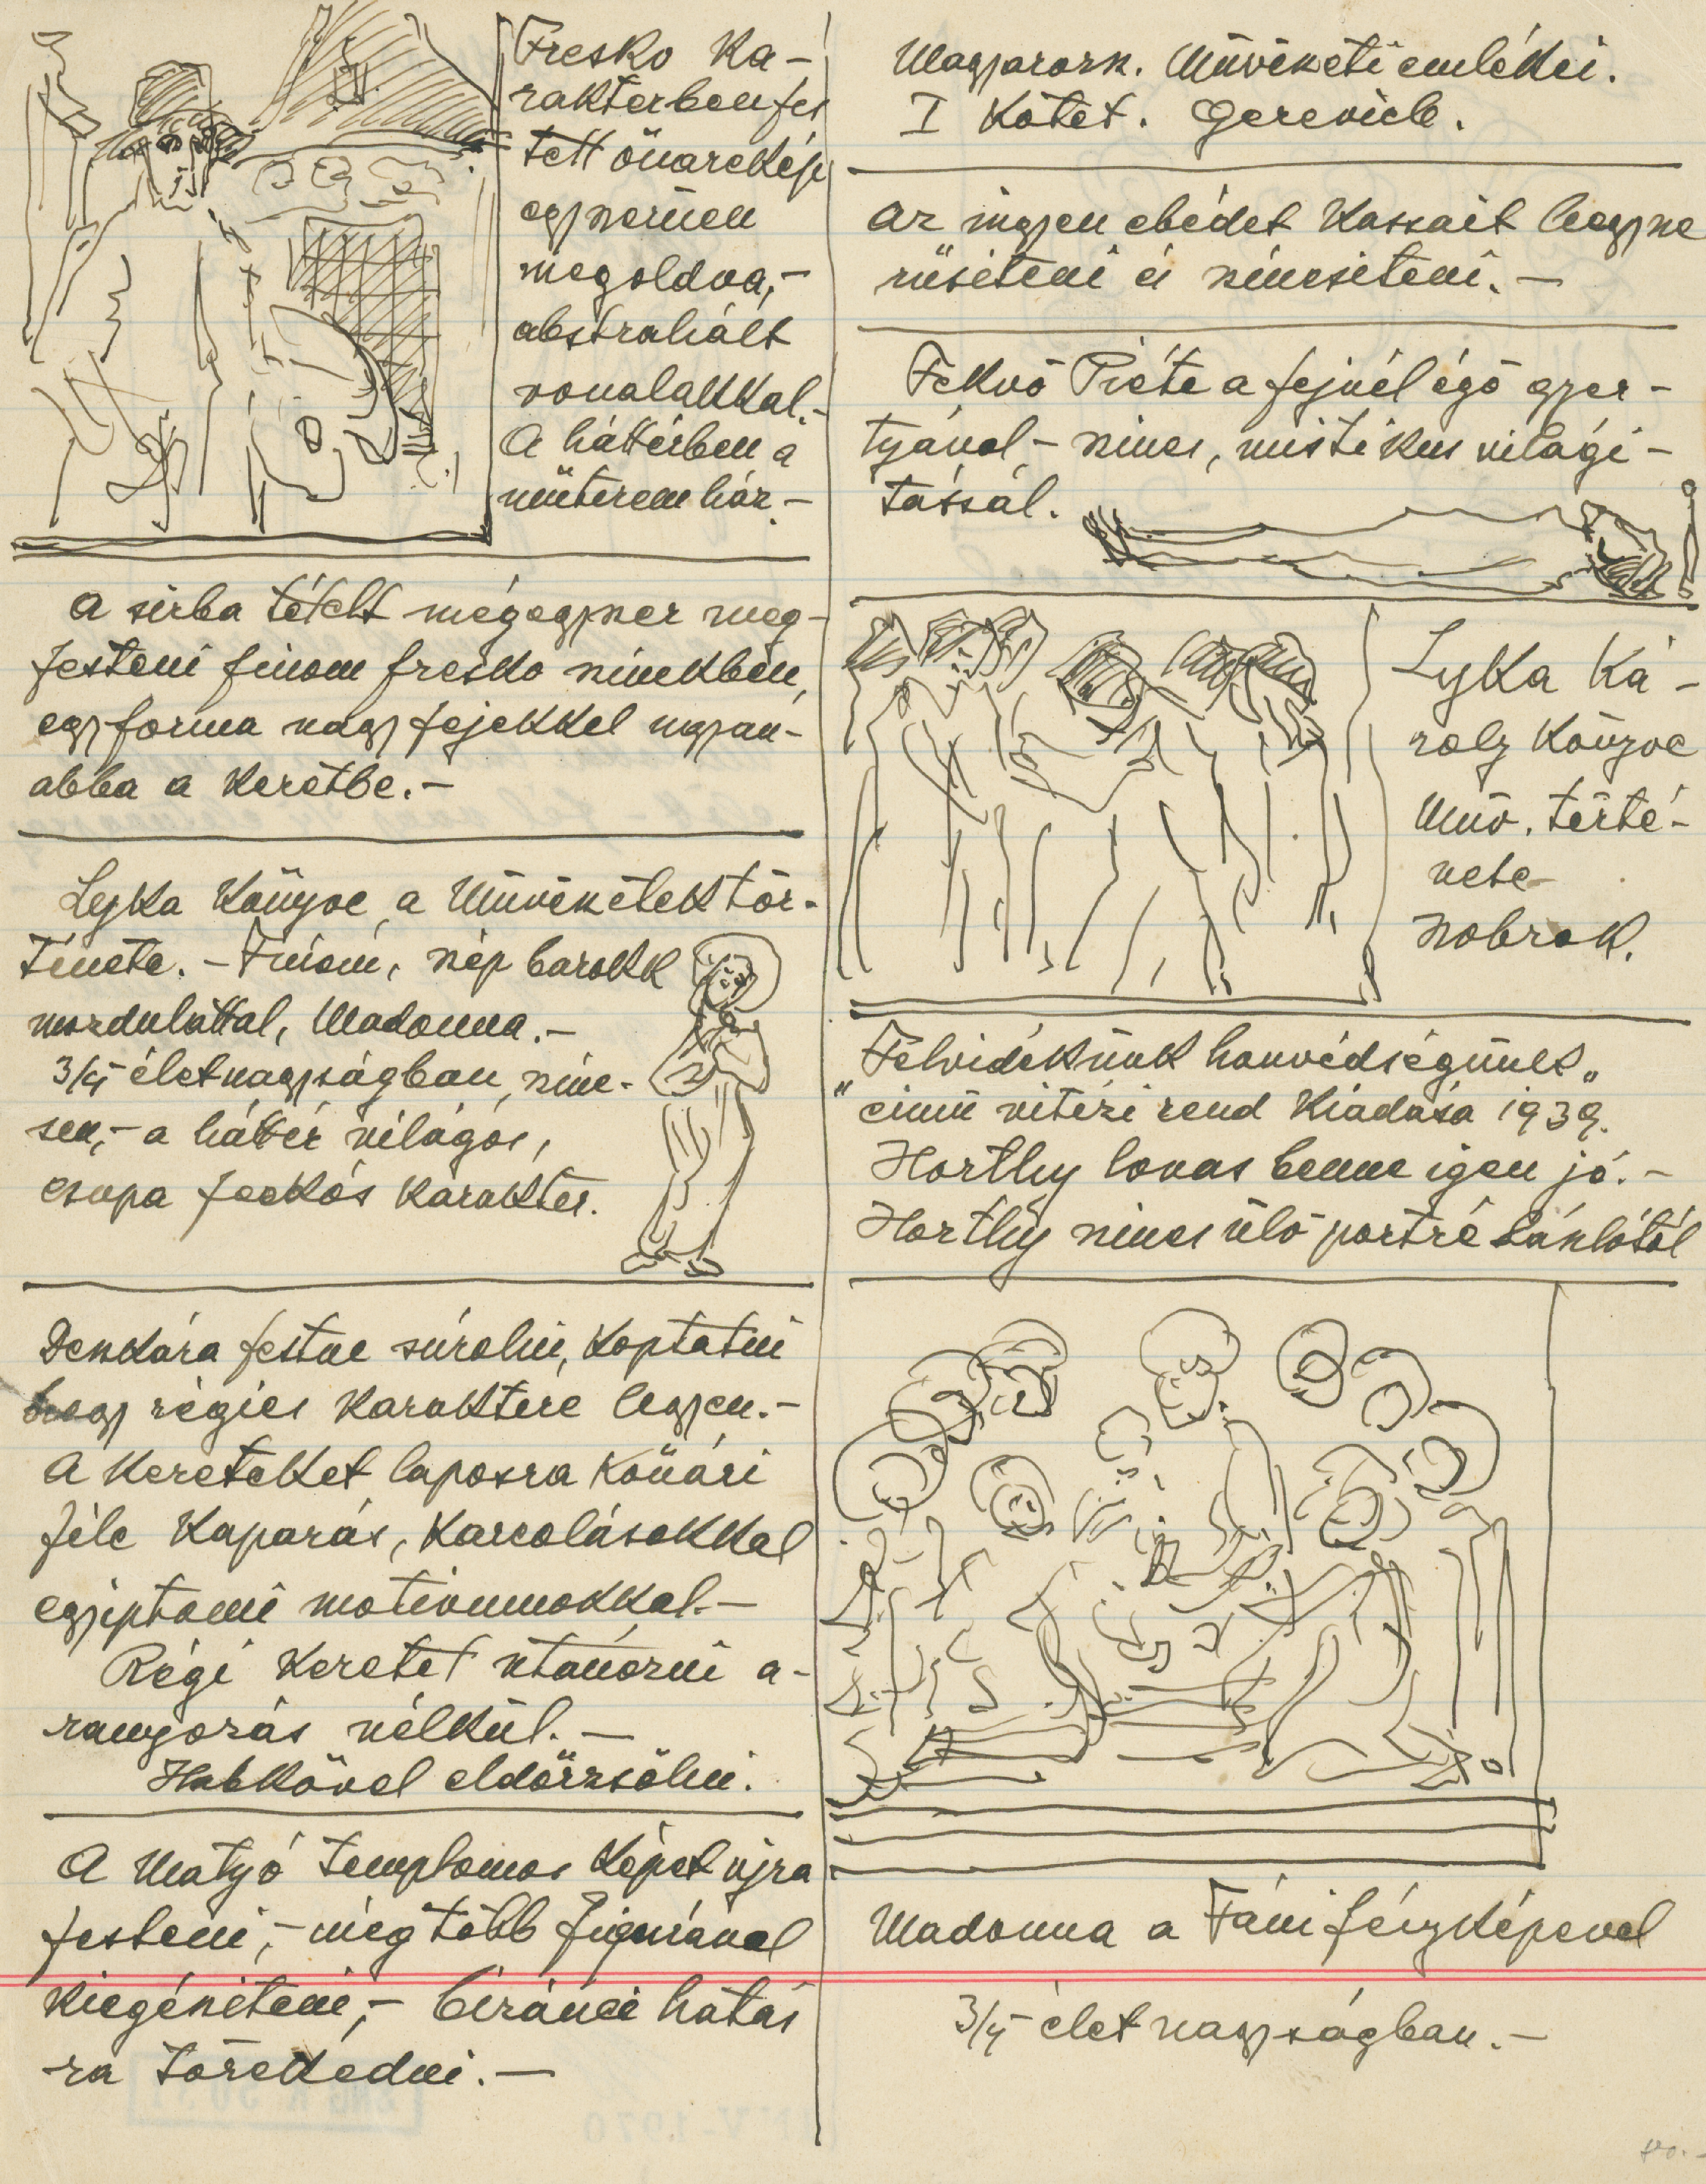 Fresko ka-
rakterben fes
tett önarckép
egyszerüen
megoldva,-
abstrahált
vonalakkal.-
A háttérben a
müterem ház.-
A sirba tételt mégegyszer meg-
festeni finom fresko szinekben,
egyforma nagy fejekkel ugyan-
abba a keretbe.-
Lyka könyve a Müvészetek tör-
ténete. - Finom, nép barokk
mozdulattal, Madonna.-
3/4 életnagyságban, szine-
sen,- a háttér világos,
csupa foltos karakter.
Deszkára festve súrolni, koptatni
hogy régies karaktere legyen.-
A kereteket laposra kőűári
féle kaparás, karcolásokkal
egyiptomi motivumokkal.-
Régi keretet utánozni a-
ranyozás nélkül.-
Habkővel eldörzsölni.
A Matyó templomos képet ujra
festeni,- még több figurával
kiegésziteni,- bizánci hatás
-ra törekedni.-
Magyarorsz. Müvészeti emlékei.
I kötet. Gerevich.
Az ingyen ebédet Kassait leegysze
rüsiteni és szinesiteni.-
Fekvő Piéta a fejnél égő gyer-
tyával - szines, misztikus világi-
tással.
Lyka Ká-
roly könyve
Müv. törté-
nete
szobrok.
"Felvidékünk honvédségünk"
cimü vitézi rend kiadása 1939.
Horthy lovas benne igen jó.-
Horthy szines ülő portré Lászlótól
Madonna a Fáni fényképével
3/4 élet nagyságban.-